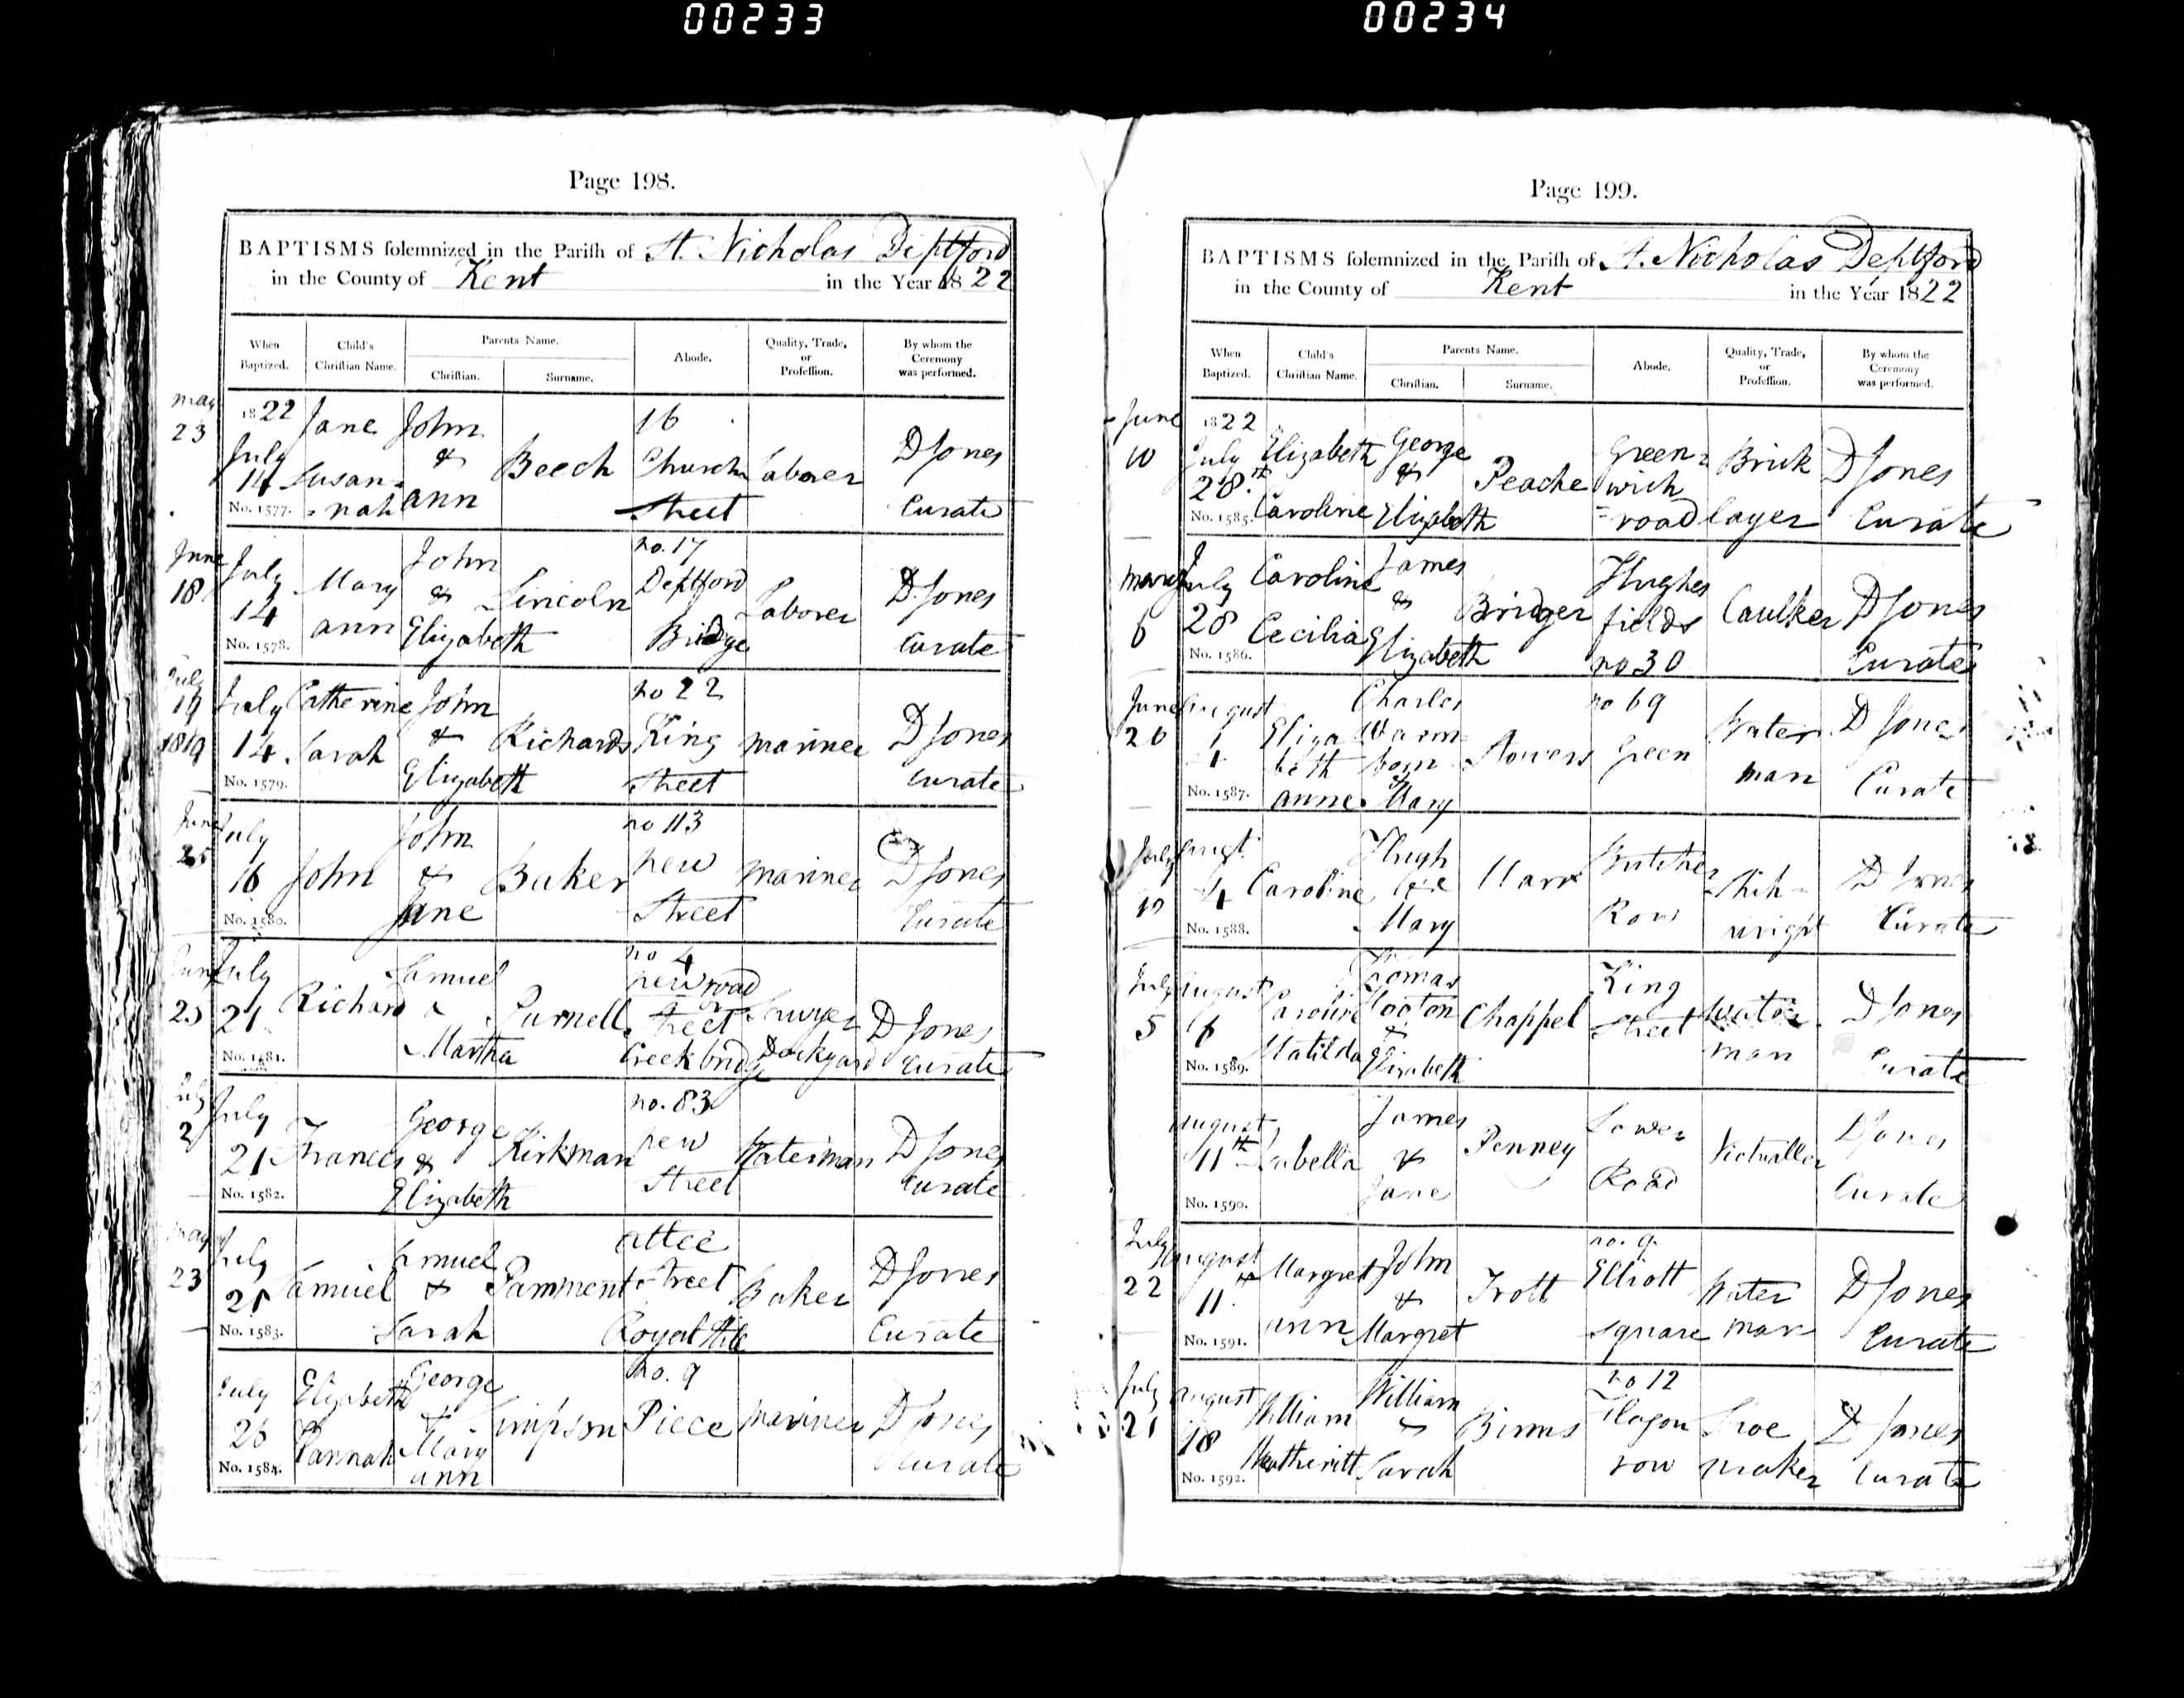 00233
00234
Page 198.
BAPTISMS solemnized in the Parish of St. Nicholas Deptford
in the County of Kent in the Year 1822
When Baptized.
Child's Christian Name.
Parents Name.
Christian.
Surname.
Abode.
Quality, Trade, or Profession.
By whom the Ceremony was performed.
may 23
1822 July 14 No. 1577.
Jane Susan=nah
John & ann
Beech
16 Church Street
Laborer
D Jones Curate
June 18
July 14 No. 1578.
Mary ann
John & Elizabeth
Lincoln
no. 17 Deptford Bridge
Laborer
D Jones Curate
July 19 1819
July 14 No. 1579.
Catherine Sarah
John & Elizabeth
Richards
no 22 King Street
mariner
D Jones Curate
June 25
July 16 No. 1580.
John
John & Jane
Baker
no 113 new Street
mariner
D Jones Curate
June 25
July 21 No. 1581.
Richard
Samuel & Martha
Purnell
no 4 new road or Street Creek bridge
Sawyer Dockyard
D Jones Curate
July 2
July 21 No. 1582.
Frances
George & Elizabeth
Kirkman
no. 83 new Street
Waterman
D Jones Curate
may 23
July 21 No. 1583.
Samuel
Samuel & Sarah
Pamment
Street Royal
Baker
D Jones Curate
July No. 1584.
Elizabeth Hannah
George & Mary ann
Simpson
no. 9 Piece
mariner
D Jones Curate
Page 199.
BAPTISMS solemnized in the Parish of St. Nicholas Deptford
in the County of Kent in the Year 1822
When Baptized.
Child's Christian Name.
Parents Name.
Christian.
Surname.
Abode.
Quality, Trade, or Profession.
By whom the Ceremony was performed.
June 10
1822 July 28.th No. 1585.
Elizabeth Caroline
George & Elizabeth
Peache
Green=wich =road
Brick layer
D Jones Curate
march 6
July 28 No. 1586.
Caroline Cecilia
James & Elizabeth
Bridger
Hughes fields no 30
Caulker
D Jones Curate
June 26
August 4 No. 1587.
Eliza beth anne
Charles & Mary
Stowers
no 69 Green
Water man
D Jones Curate
July
Augt. 4 No. 1588.
Caroline
Hugh & Mary
Butcher Row
Ship=wright
D Jones Curate
July 5
August No. 1589.
Caroline Matilda
Thomas & Elizabeth
Chappel
King Street
Water man
D Jones Curate
August 11th No. 1590.
Isabella
James & Jane
Penney
Lower Road
Victualler
D Jones Curate
July 22
August 11th No. 1591.
Margret ann
John & Margret
Trott
no. 9 Elliott square
Water man
D Jones Curate
July 21
August 18 No. 1592.
William
William & Sarah
Binns
no 12 Flagon row
Shoe maker
D Jones Curate